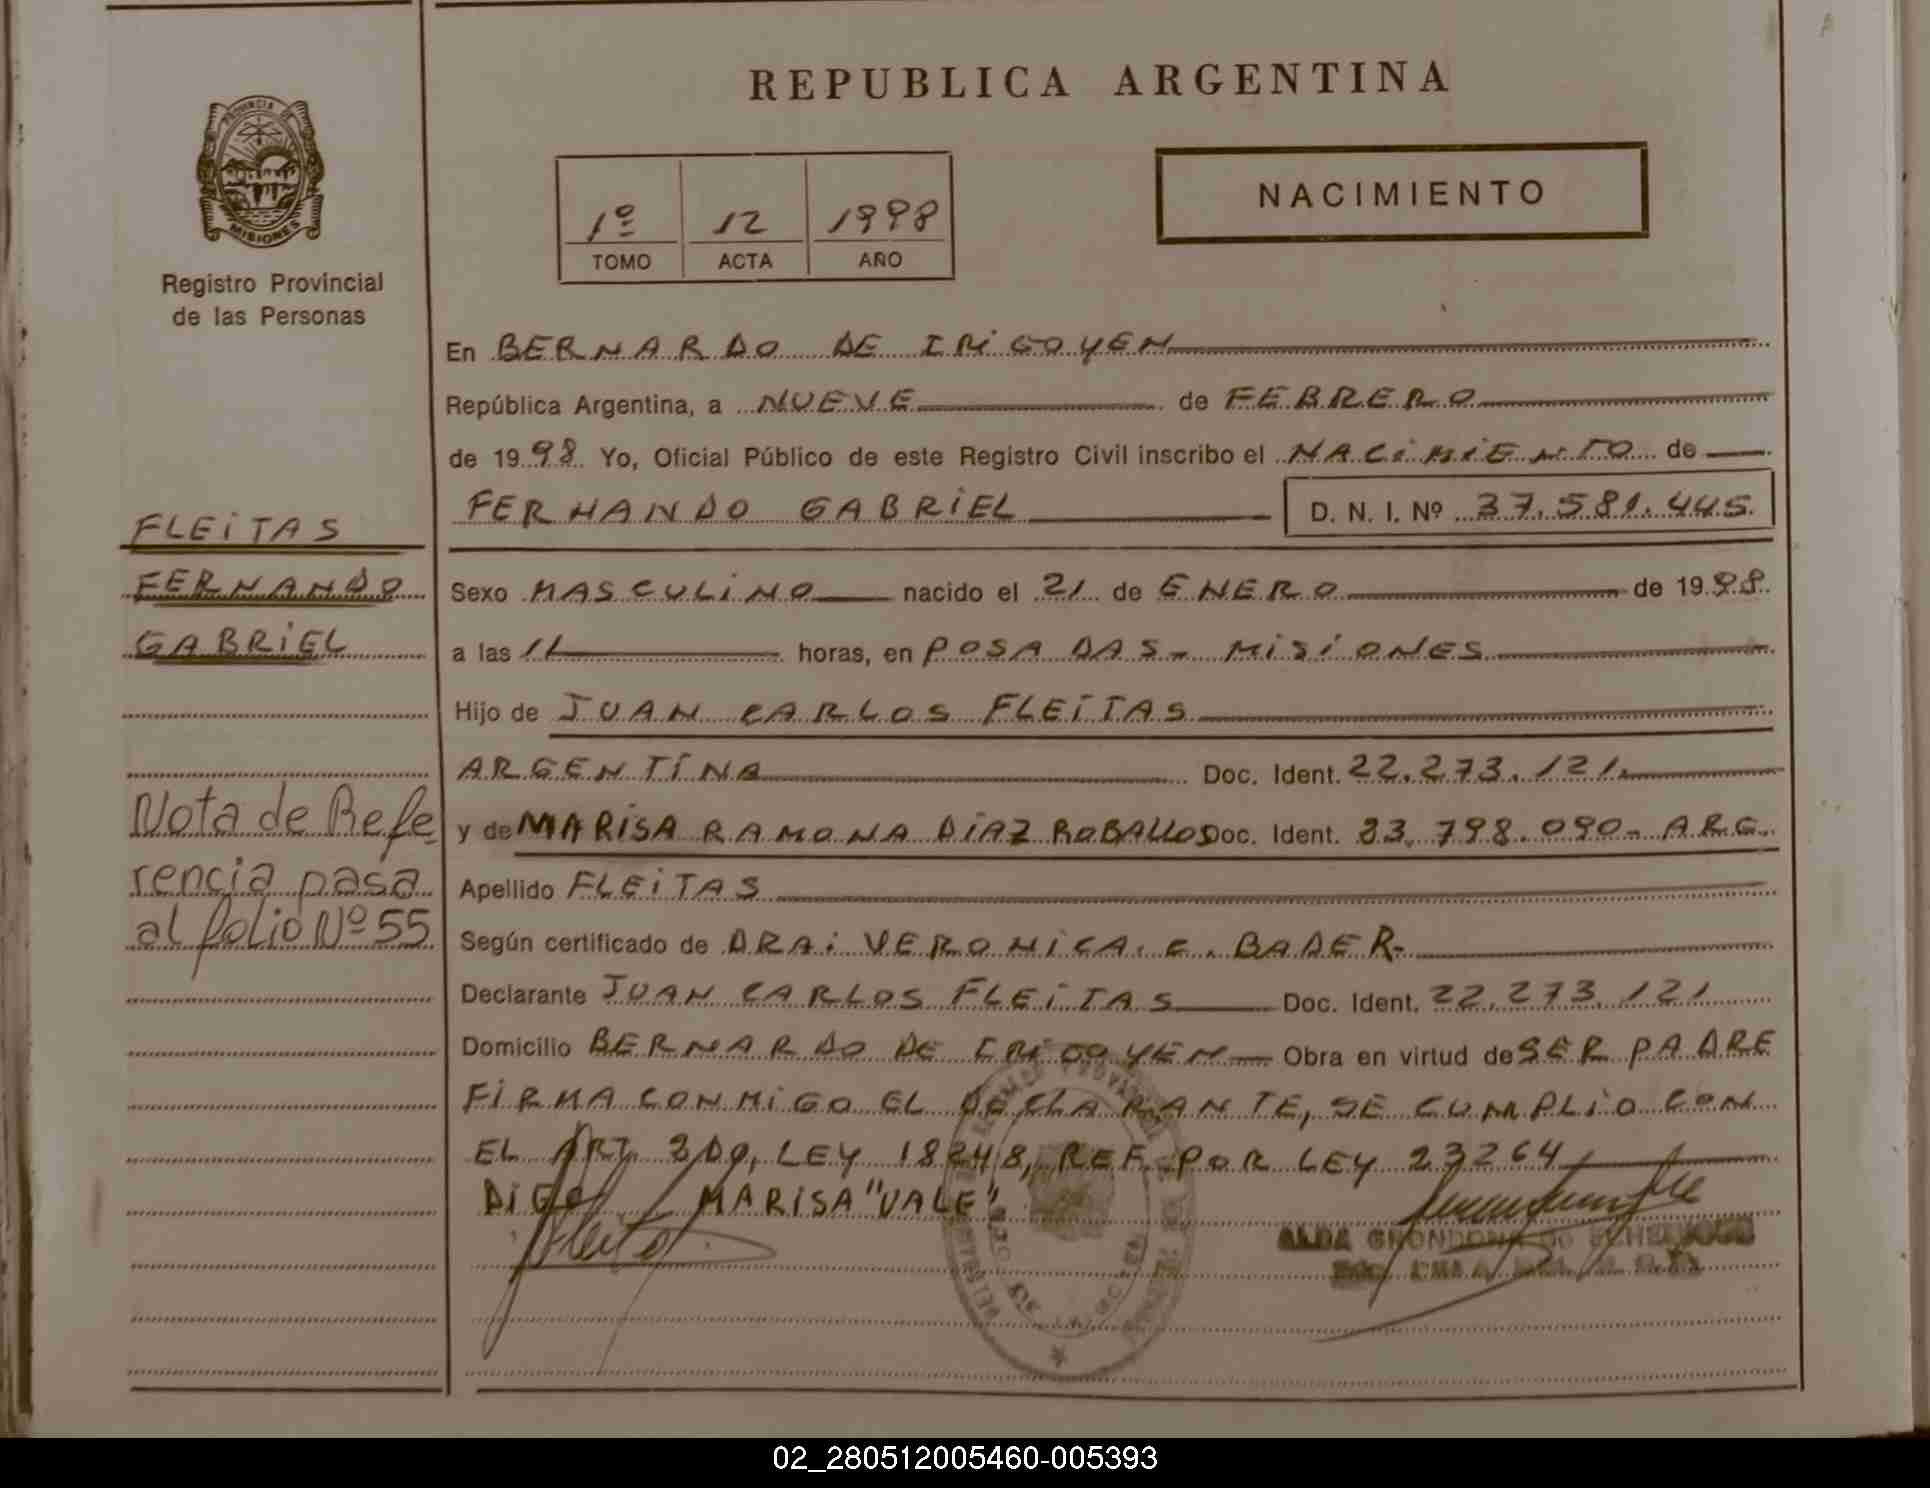 REPUBLICA ARGENTINA
PROVINCIA DE
MISIONES
Registro Provincial
de las Personas
1º 12 1998
TOMO ACTA AÑO
NACIMIENTO
En BERNARDO DE IRIGOYEN
República Argentina, a NUEVE de FEBRERO
de 1998 Yo, Oficial Público de este Registro Civil inscribo el NACIMIENTO de
FERNANDO GABRIEL D. N. I. Nº 37.581.445.
FLEITAS
FERNANDO
GABRIEL
Sexo MASCULINO nacido el 21 de ENERO de 1998.
a las 11 horas, en POSADAS - MISIONES
Hijo de JUAN CARLOS FLEITAS
ARGENTINA Doc. Ident. 22.273.121.
y de MARISA RAMONA DIAZ ROBALLOS Doc. Ident. 23.798.090- ARG.
Apellido FLEITAS
Nota de Refe-
rencia pasa
al folio Nº 55
Según certificado de DRA: VERONICA. E. BADER-
Declarante JUAN CARLOS FLEITAS Doc. Ident. 22.273.121
Domicilio BERNARDO DE IRIGOYEN Obra en virtud de SER PADRE
FIRMA CONMIGO EL DECLARANTE, SE CUMPLIO CON
EL ART. 2DO, LEY 18248, REF. POR LEY 23264
DIGO MARISA "VALE"
Fleitas
ALDA GRONDONA de
02_280512005460-005393